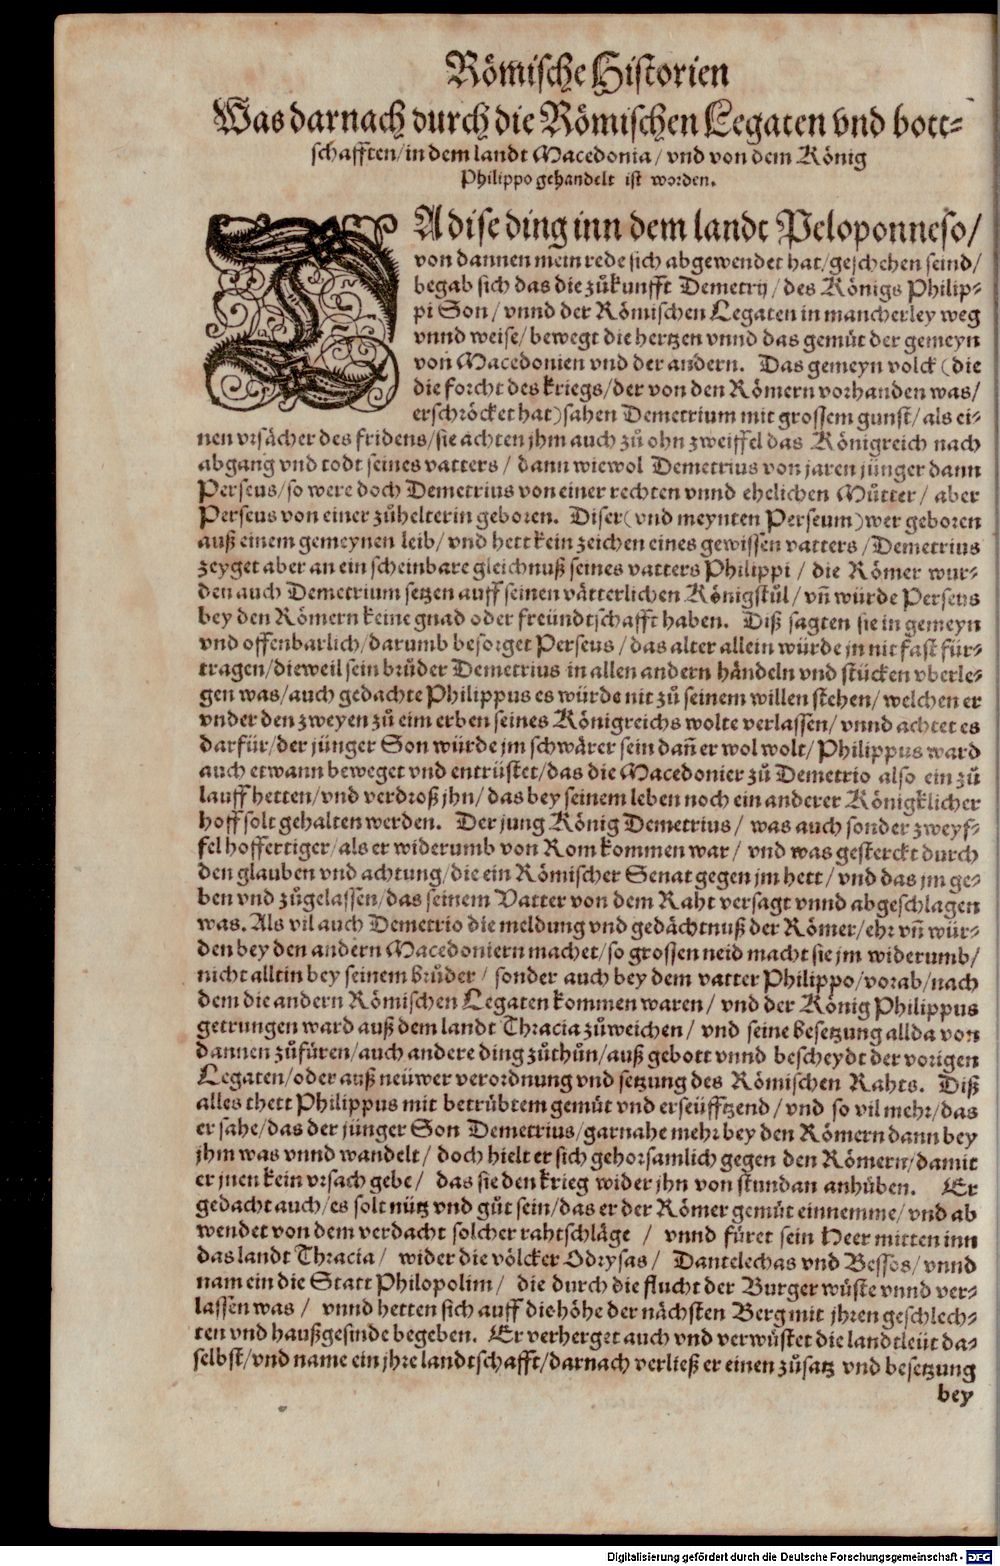 Römische Historien
Was darnach durch die Römischen Legaten vnd bott-
schafften/in dem landt Macedonia/ vnd von dem König
Philippo gehandelt ist worden.
DA dise ding inn dem landt Peloponneso/
von dannen mein rede sich abgewendet hat/geschehen seind/
begab sich das die zůkunfft Demetrij/des Königs Philip-
pi Son/ vnnd der Römischen Legaten in mancherley weg
vnnd weise/bewegt die hertzen vnnd das gemüt der gemeyn
von Macedonien vnd der andern. Das gemeyn volck (die
die forcht des kriegs/der von den Römern vorhanden was/
erschröcket hat) sahen Demetrium mit grossem gunst/als ei-
nen vrsächer des fridens/sie achten jhm auch zů ohn zweiffel das Königreich nach
abgang vnd todt seines vatters/ dann wiewol Demetrius von jaren jünger dann
Perseus/so were doch Demetrius von einer rechten vnnd ehelichen Můtter/ aber
Perseus von einer zůhelterin geboren. Diser (vnd meynten Perseum) wer geboren
auß einem gemeynen leib/ vnd hett kein zeichen eines gewissen vatters/Demetrius
zeyget aber an ein scheinbare gleichnuß seines vatters Philippi/ die Römer wur-
den auch Demetrium setzen auff seinen vätterlichen Königstůl/ vñ würde Perseus
bey den Römern keine gnad oder freündtschafft haben. Diß sagten sie in gemeyn
vnd offenbarlich/darumb besorget Perseus/das alter allein würde jn nit fast für-
tragen/dieweil sein brůder Demetrius in allen andern händeln vnd stücken vberle-
gen was/auch gedachte Philippus es würde nit zů seinem willen stehen/welchen er
vnder den zweyen zů eim erben seines Königreichs wolte verlassen/vnnd achtet es
darfür/der jünger Son würde jm schwärer sein dañ er wol wolt/Philippus ward
auch etwann beweget vnd entrüstet/das die Macedonier zů Demetrio also ein zů
lauff hetten/vnd verdroß jhn/das bey seinem leben noch ein anderer Königklicher
hoff solt gehalten werden. Der jung König Demetrius/ was auch sonder zweyf-
fel hoffertiger/als er widerumb von Rom kommen war/ vnd was gesterckt durch
den glauben vnd achtung/die ein Römischer Senat gegen jm hett/vnd das jm ge-
ben vnd zůgelassen/das seinem Vatter von dem Raht versagt vnnd abgeschlagen
was. Als vil auch Demetrio die meldung vnd gedächtnuß der Römer/ehr vñ wür-
den bey den andern Macedoniern machet/so grossen neid macht sie jm widerumb/
nicht allein bey seinem brůder/ sonder auch bey dem vatter Philippo/vorab/nach
dem die andern Römischen Legaten kommen waren/ vnd der König Philippus
getrungen ward auß dem landt Thracia zůweichen/ vnd seine besetzung allda von
dannen zůfüren/auch andere ding zůthůn/auß gebott vnnd bescheydt der vorigen
Legaten/oder auß neüwer verordnung vnd setzung des Römischen Rahts. Diß
alles thett Philippus mit betrübtem gemüt vnd erseüfftzend/vnd so vil mehr/das
er sahe/das der jünger Son Demetrius/garnahe mehr bey den Römern dann bey
jhm was vnnd wandelt/ doch hielt er sich gehorsamlich gegen den Römern/damit
er jnen kein vrsach gebe/ das sie den krieg wider jhn von stundan anhüben. Er
gedacht auch/es solt nütz vnd gůt sein/das er der Römer gemüt einnemme/vnd ab
wendet von dem verdacht solcher rahtschläge/ vnnd füret sein Heer mitten inn
das landt Thracia/ wider die völcker Odrysas/ Dantelechas vnd Bessos/vnnd
nam ein die Statt Philopolim/ die durch die flucht der Burger wüste vnnd ver-
lassen was/ vnnd hetten sich auff die höhe der nächsten Berg mit jhren geschlech-
ten vnd haußgesinde begeben. Er verherget auch vnd verwüstet die landtleüt da-
selbst/vnd name ein jhre landtschafft/darnach verließ er einen zůsatz vnd besetzung
bey
Digitalisierung gefördert durch die Deutsche Forschungsgemeinschaft - DFG